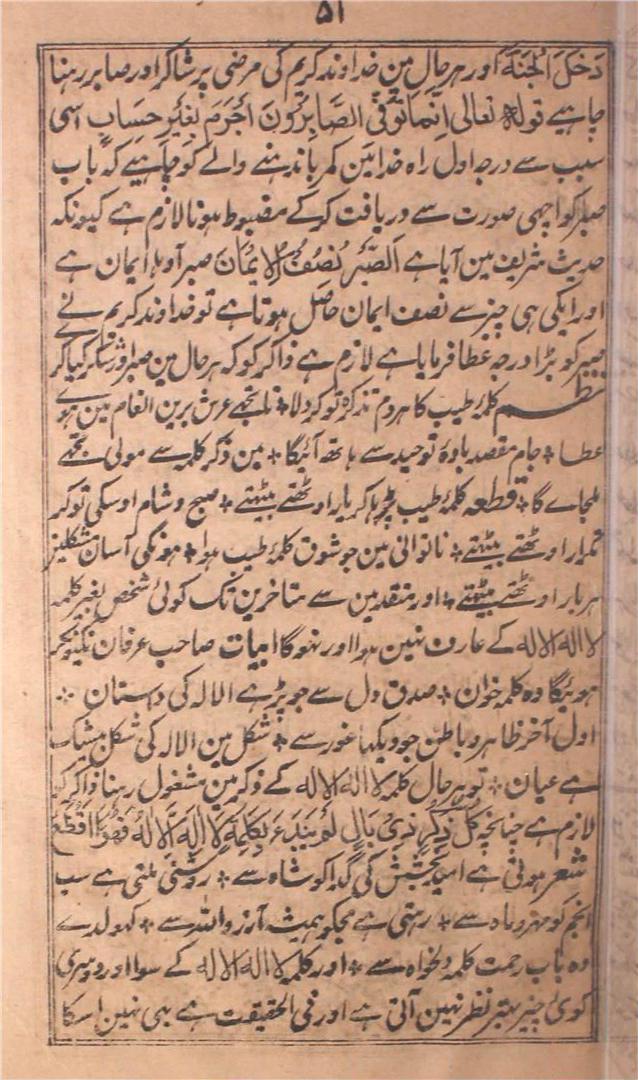 ۵۱
دَخَلَ الْجَنَّةَ اور ہر حال مین خداوند کریم کی مرضی پر شاکر اور صابر رہنا
چاہیے قولہ تعالی اِنَّمَا یُوَفَّی الصَّابِرُوْنَ اَجْرَہُمْ بِغَیْرِ حِسَابٍ اسی
سبب سے درجہ اول راہ خدا مین کمر باندہنے والے کو چاہیے کہ باب
صبر کو اچہی صورت سے دریافت کرکے مضبوط ہونا لازم ہے کیونکہ
حدیث شریف مین آیا ہے اَلصَّبْرُ نِصْفُ الْاِیْمَانِ صبر آدہا ایمان ہے
اور ایکی ہی چیز سے نصف ایمان حاصل ہوتا ہے تو خداوند کریم نے
صبر کو بڑا درجہ عطا فرمایا ہے لازم ہے ذاکر کو کہ ہر حال مین صبر اور شکر کیا کرے
نظم کلمۂ طیب کا ہر دم تذکرہ تو کر دلا ٭ تا تجہے عرش برین انعام مین ہوے
عطا ٭ جام مقصد بادۂ توحید سے ہاتھ آئیگا ٭ مین ذکر کلمہ سے مولی تجہے
ملجاے گا ٭ قطعہ کلمۂ طیب پڑہا کر یار اوٹھتے بیٹھتے ٭ صبح و شام اوسکی تو کر
تکرار اوٹھتے بیٹھتے ٭ ناتوانی مین جو شوق کلمۂ طیب ہوا ٭ ہونگی آسان مشکلین
ہر بار اوٹھتے بیٹھتے ٭ اور متقدمین سے متاخرین تک کوئی شخص بغیر کلمہ
لا الہ الا اللہ کے عارف نہین ہوا اور نہوگا ابیات صاحب عرفان
ہوئیگا وہ کلمہ خوان ٭ صدق دل سے جو پڑہے الا اللہ کی داستان ٭
اول آخر ظاہر و باطن جو دیکہا غور سے ٭ شکل مین الا اللہ کی شکل بیشک
ہے عیان ٭ تو ہر حال کلمہ لا الہ الا اللہ کے ذکر مین مشغول رہنا ذاکر کو
لازم ہے چنانچہ کُلُّ ذِکْرٍ ذِیْ بَالٍ لَمْ یُبْدَءْ بِکَلِمَةِ لَا اِلٰہَ اِلَّا اللہُ فَہُوَ اَقْطَعُ
شعر ہوتی ہے امید بخشش کی گدا کو شاہ سے ٭ روشنی ملتی ہے سب
انجم کو مہر و ماہ سے ٭ رہتی ہے مجکو ہمیشہ آرزو اللہ سے ٭ کہولدے
وہ باب رحمت کلمۂ دلخواہ سے ٭ اور کلمہ لا الہ الا اللہ کے سوا اور دوسری
کوئی چیز بہتر نظر نہین آتی ہے اور فی الحقیقت ہے بہی نہین اسکا